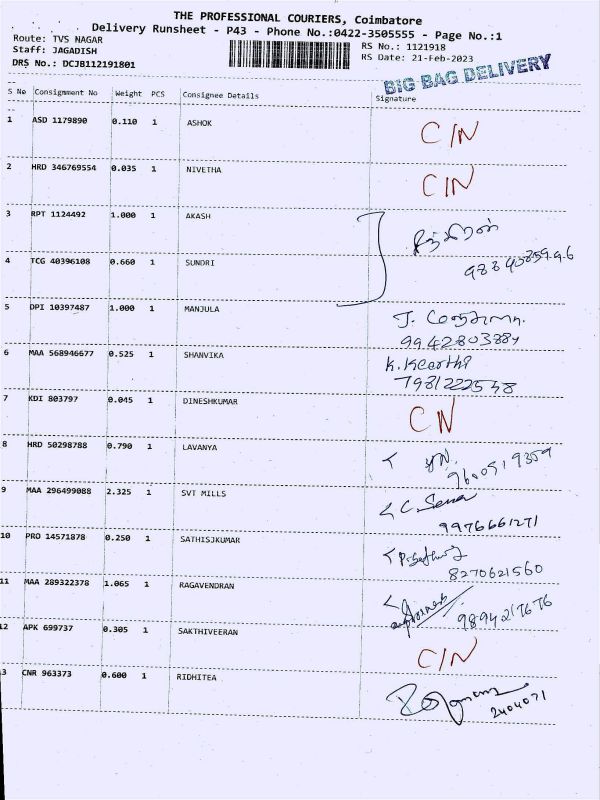 THE PROFESSIONAL COURIERS, Coimbatore
Delivery Runsheet - P43 - Phone No.:0422-3505555 - Page No.:1
Route: TVS NAGAR
Staff: JAGADISH
DRS No.: DCJB112191801
RS No.: 1121918
RS Date: 21-Feb-2023
BIG BAG DELIVERY
S No Consignment No Weight PCS Consignee Details Signature
1 ASD 1179890 0.110 1 ASHOK C/N
2 HRD 346769554 0.035 1 NIVETHA C/N
3 RPT 1124492 1.000 1 AKASH
4 TCG 40396108 0.660 1 SUNDRI
5 DPI 10397487 1.000 1 MANJULA J.
9942803884
6 MAA 568946677 0.525 1 SHANVIKA K. Keerthi
7981222548
7 KDI 803797 0.045 1 DINESHKUMAR CN
8 HRD 50298788 0.790 1 LAVANYA
9600519359
9 MAA 296499088 2.325 1 SVT MILLS
9976661271
10 PRO 14571878 0.250 1 SATHISJKUMAR
8270621560
11 MAA 289322378 1.065 1 RAGAVENDRAN
9894217676
12 APK 699737 0.305 1 SAKTHIVEERAN C/N
3 CNR 963373 0.600 1 RIDHITEA
2404071